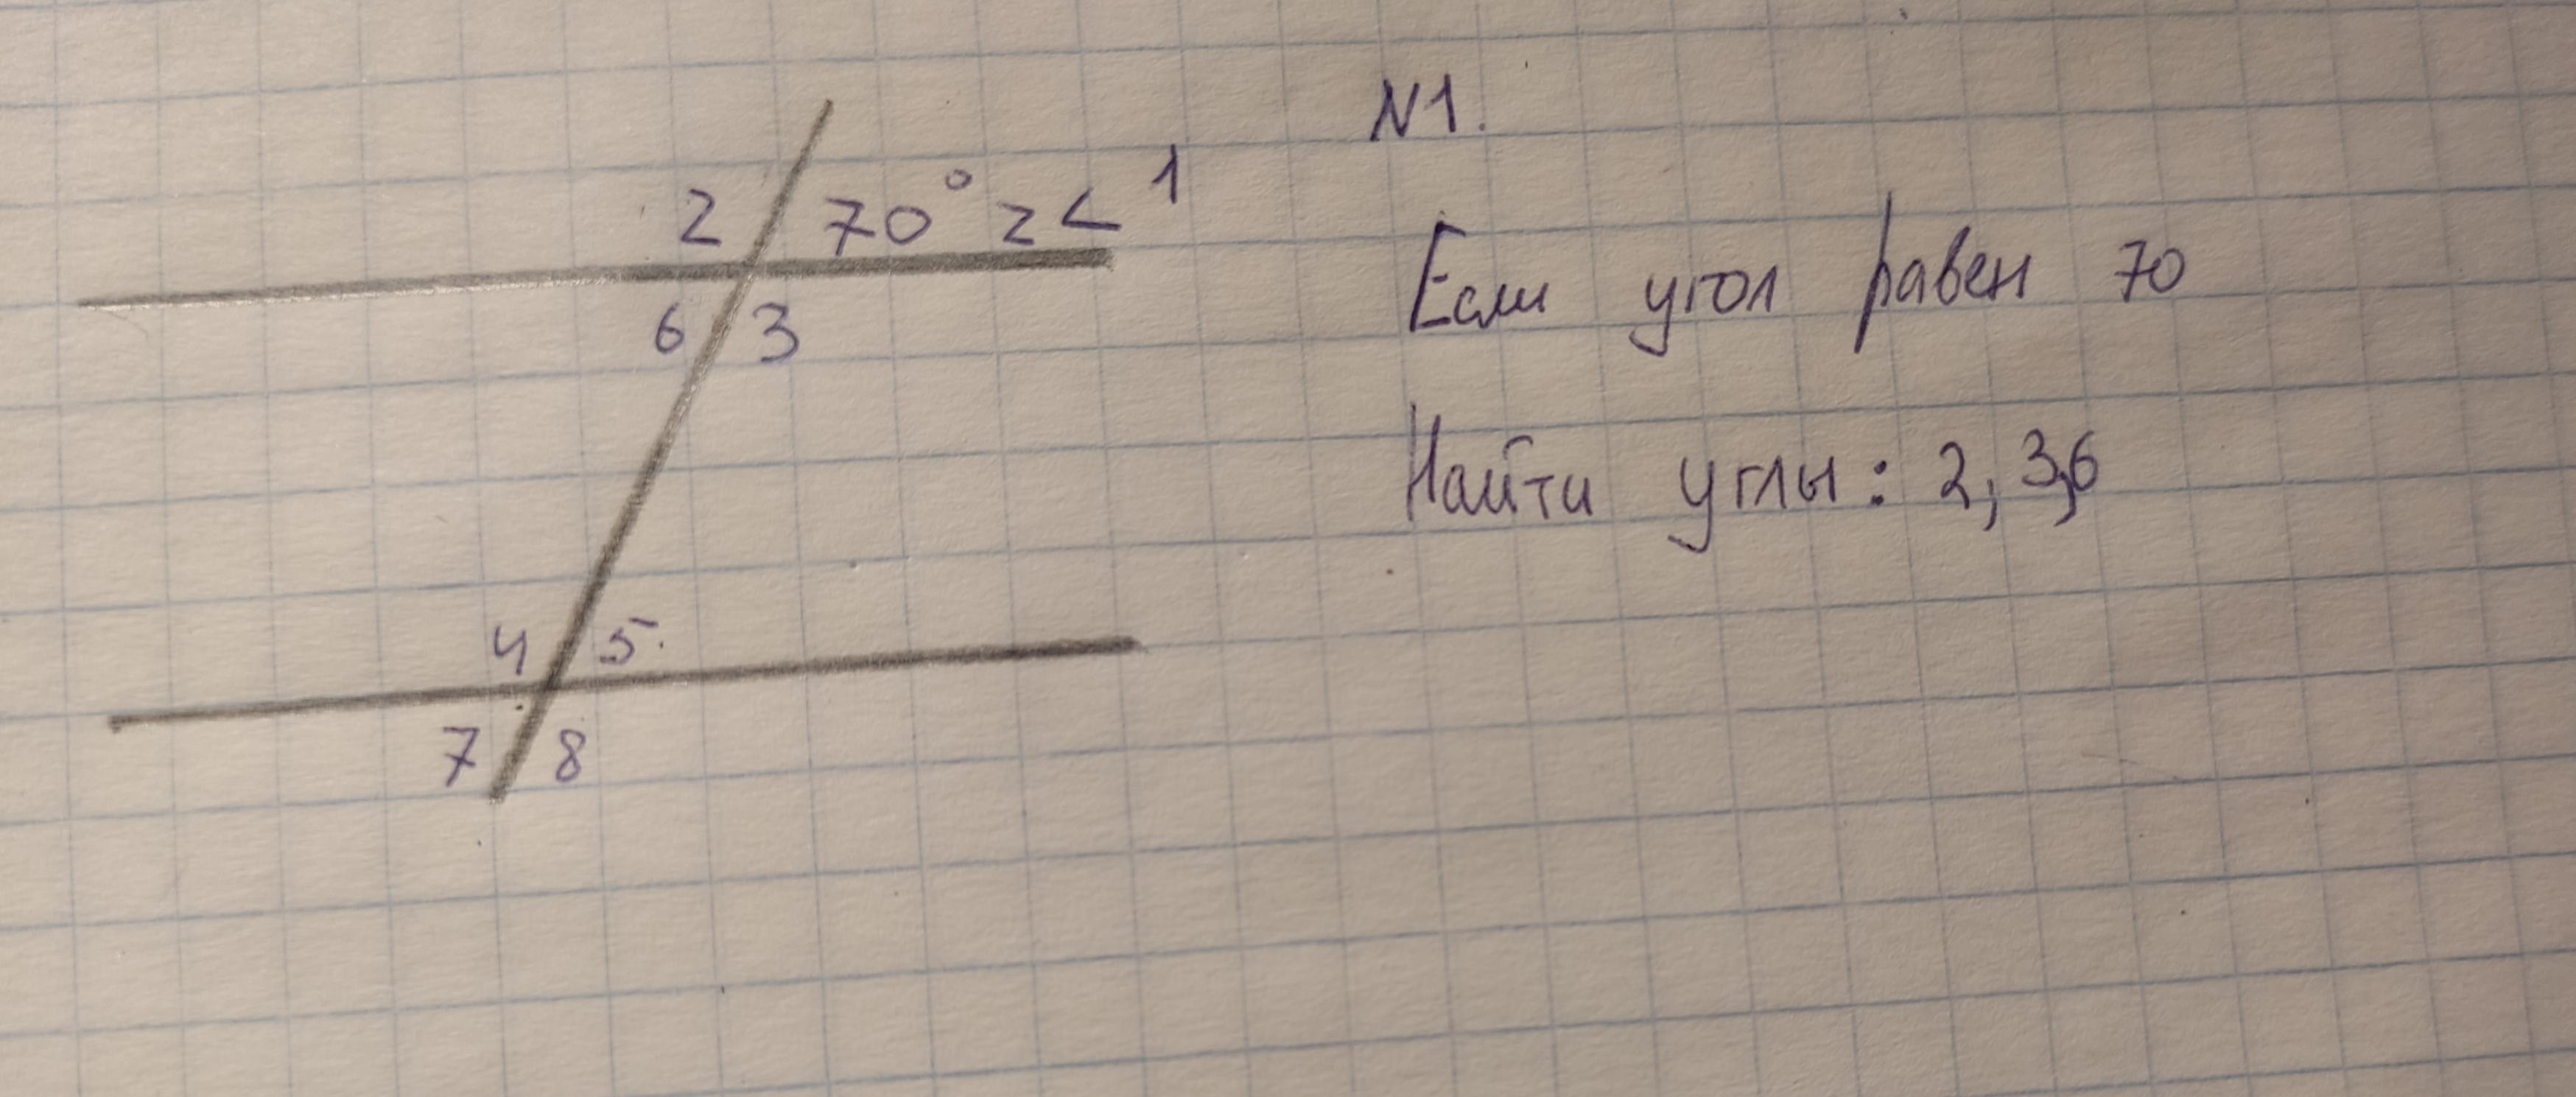 N1.
2 70° = < 1
Если угол равен 70
6 3
Найти углы: 2, 3,6
4 5
7 8